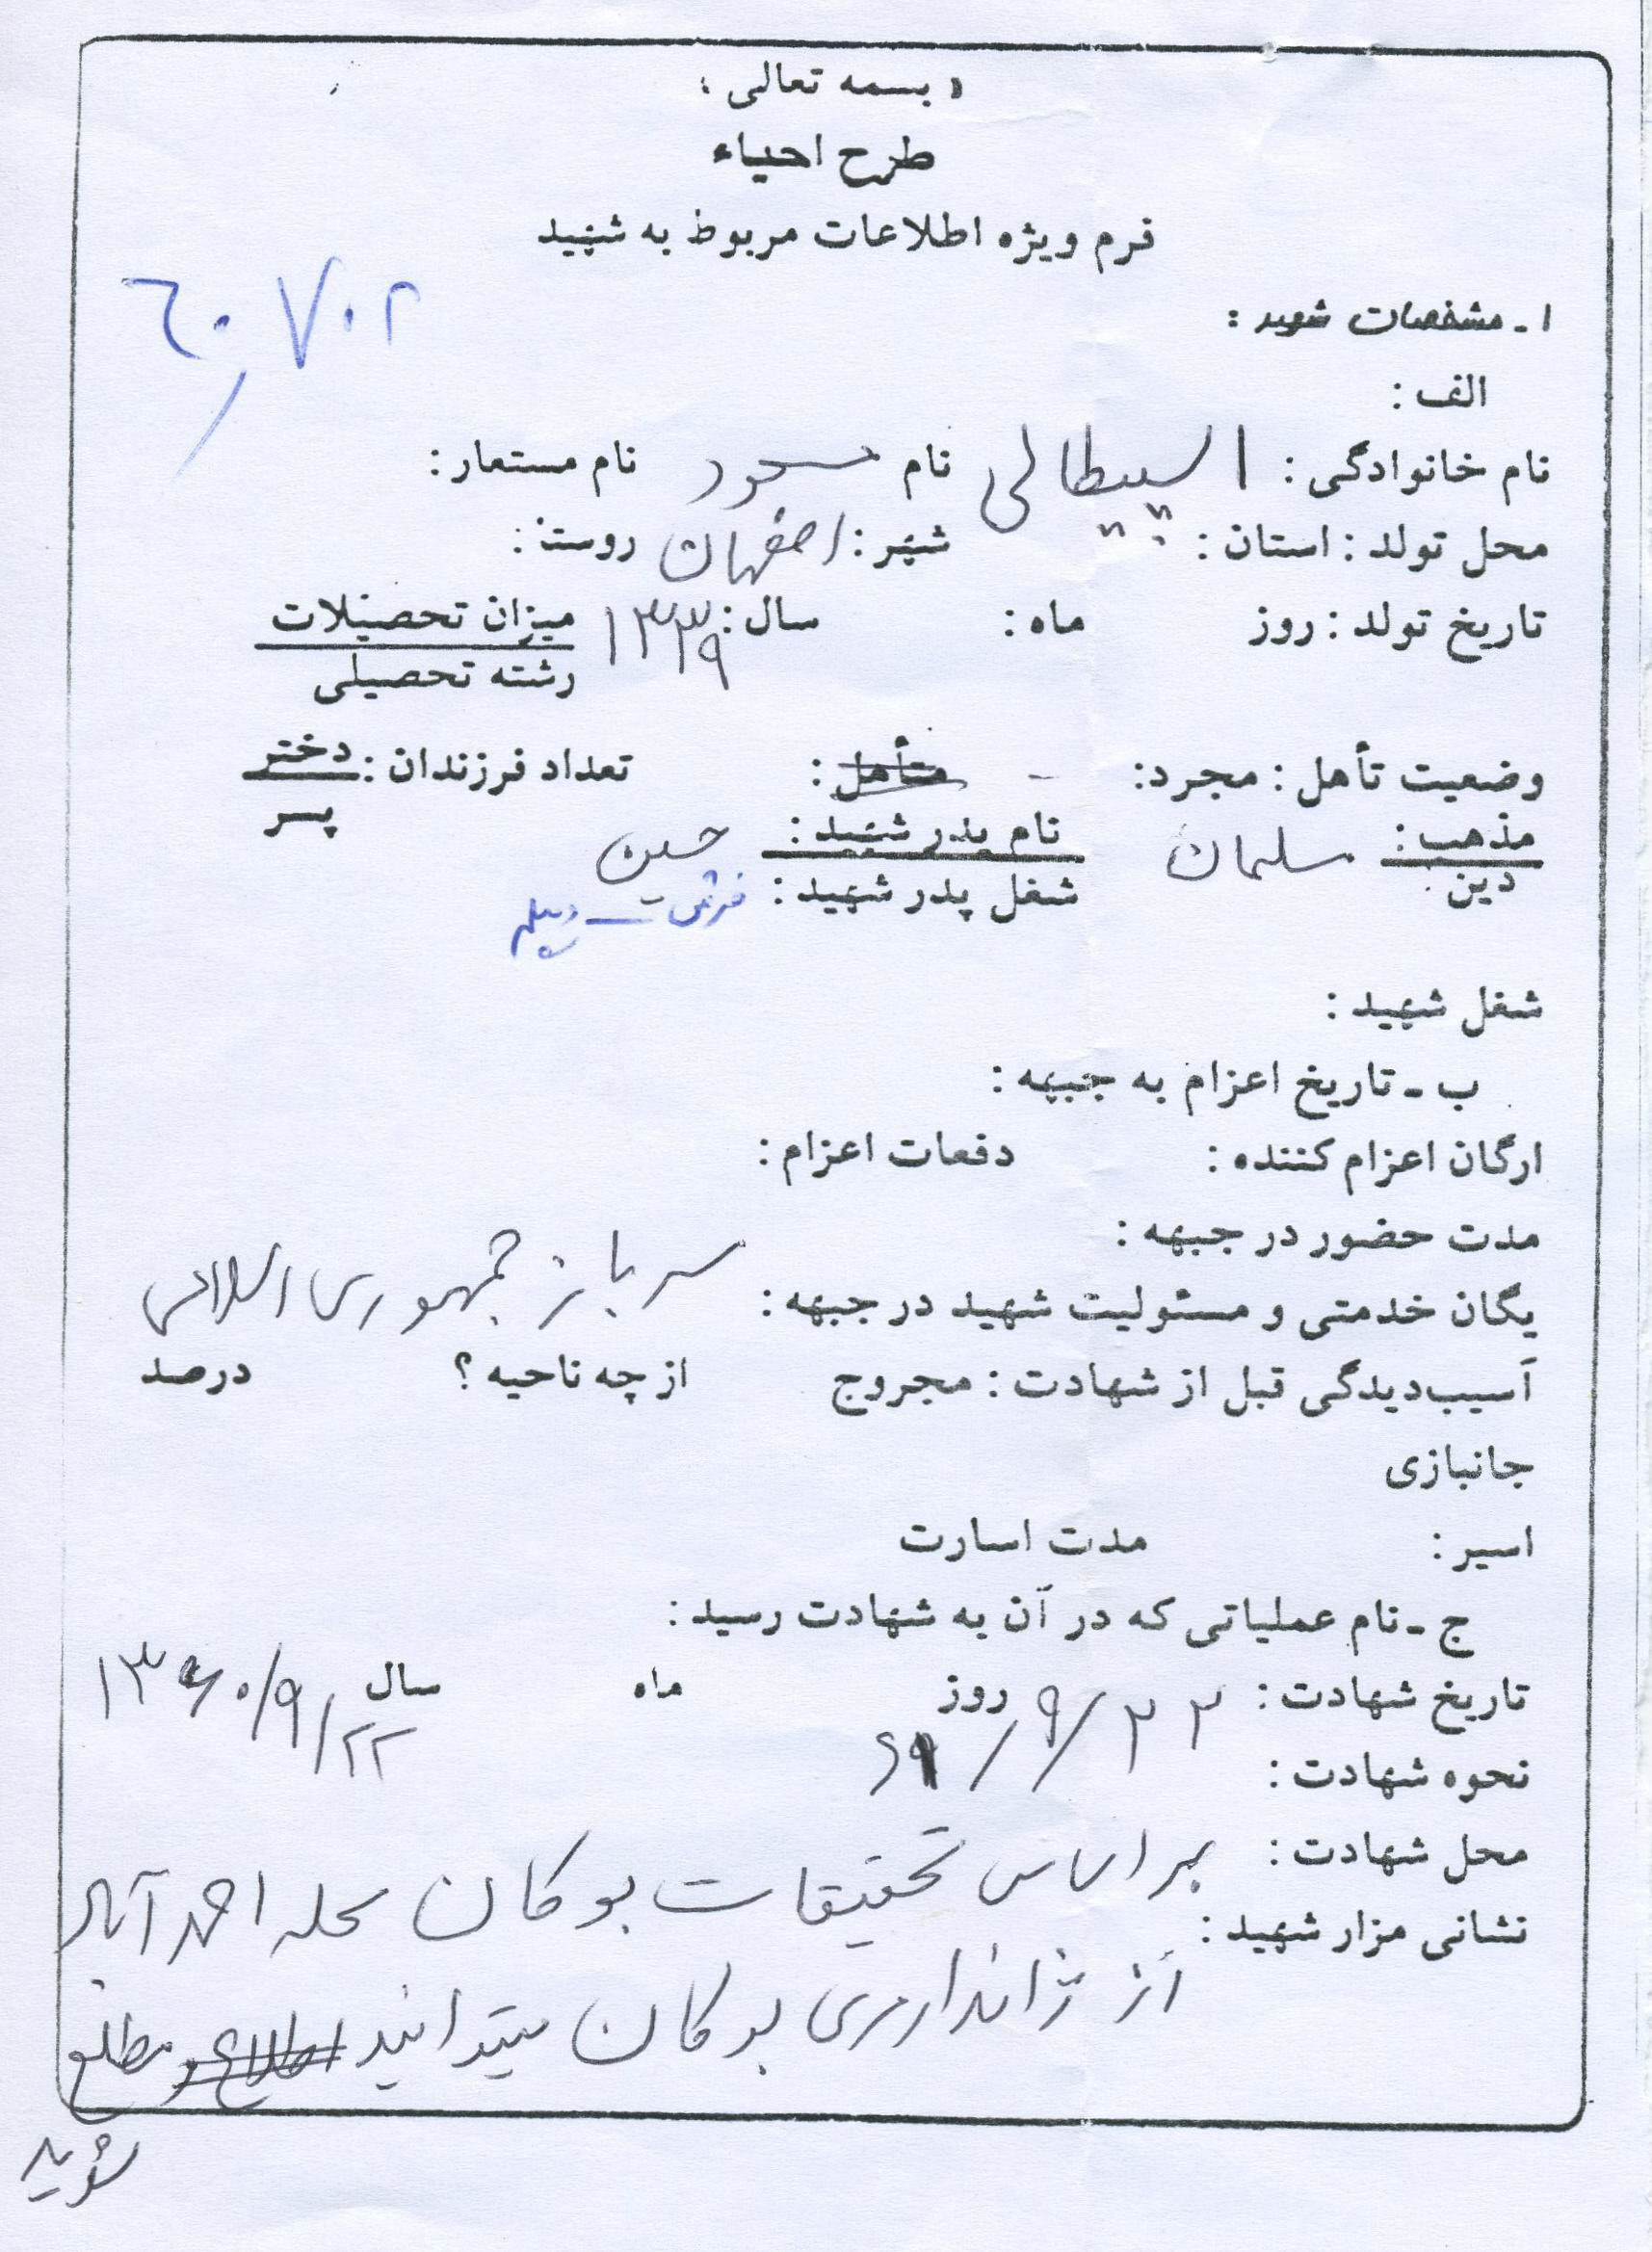 « بسمه تعالی »
طرح احیاء
فرم ویژه اطلاعات مربوط به شهید
۶۰۷۰۲
۱ - مشخصات شهید :
الف :
نام خانوادگی : اسپیتالی نام مسعود نام مستعار :
محل تولد : استان : شهر : اصفهان روستا :
تاریخ تولد : روز ماه : سال : ۱۳۳۹ میزان تحصیلات
رشته تحصیلی
وضعیت تأهل : مجرد : متأهل : تعداد فرزندان : دختر
پسر
مذهب : مسلمان نام پدر شهید : حسین
دین شغل پدر شهید :
شغل شهید :
ب - تاریخ اعزام به جبهه :
ارگان اعزام کننده : دفعات اعزام :
مدت حضور در جبهه :
یگان خدمتی و مسئولیت شهید در جبهه : سرباز جمهوری اسلامی
آسیب‌دیدگی قبل از شهادت : مجروح از چه ناحیه ؟ درصد
جانبازی
اسیر : مدت اسارت
ج - نام عملیاتی که در آن به شهادت رسید :
تاریخ شهادت : ۲۲ / ۹ / روز ماه سال ۱۳۶۰/۹/۲۲
نحوه شهادت :
محل شهادت : بر اساس تحقیقات بوکان محله احمد آباد
نشانی مزار شهید :
از ژاندارمری بوکان میتوانید اطلاع مطلع
شوید